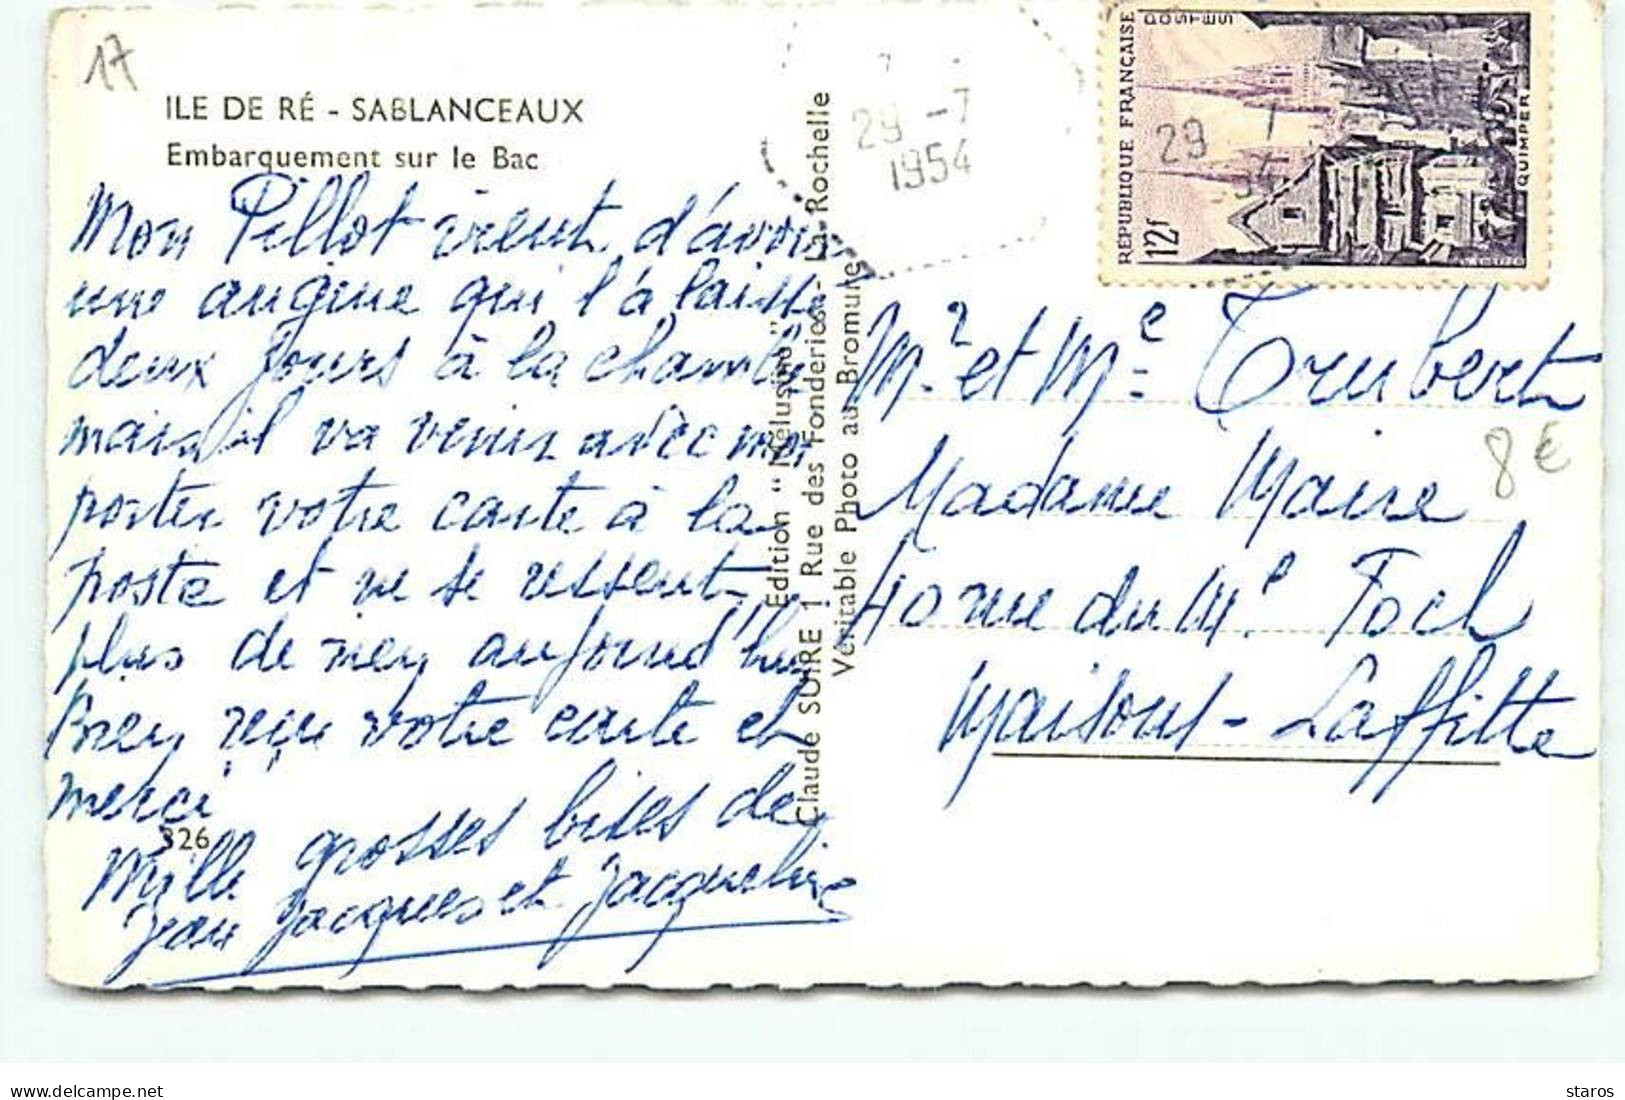 17
ILE DE RÉ - SABLANCEAUX
Embarquement sur le Bac
Mon Pillot vient d'avoir
une angine qui l'à laissé
deux jours à la chambre
mais il va venir avec moi
porter votre carte à la
poste et ne se ressent
plus de rien aujourd'hui
Bien reçu votre carte et
merci
326
Mille grosses bises de
Jean Jacques et Jacqueline
Edition "Mélusine"
Claude SUIRE 1 Rue des Fonderies - La Rochelle
Véritable Photo au Bromure
29 -7
1954
RÉPUBLIQUE FRANÇAISE
POSTES
12f
QUIMPER
29 7
54
Mr et Me Trubert
8 €
Madame Maire
40 rue du Ml Foch
Maisons-Laffitte
delcampe.net
staros